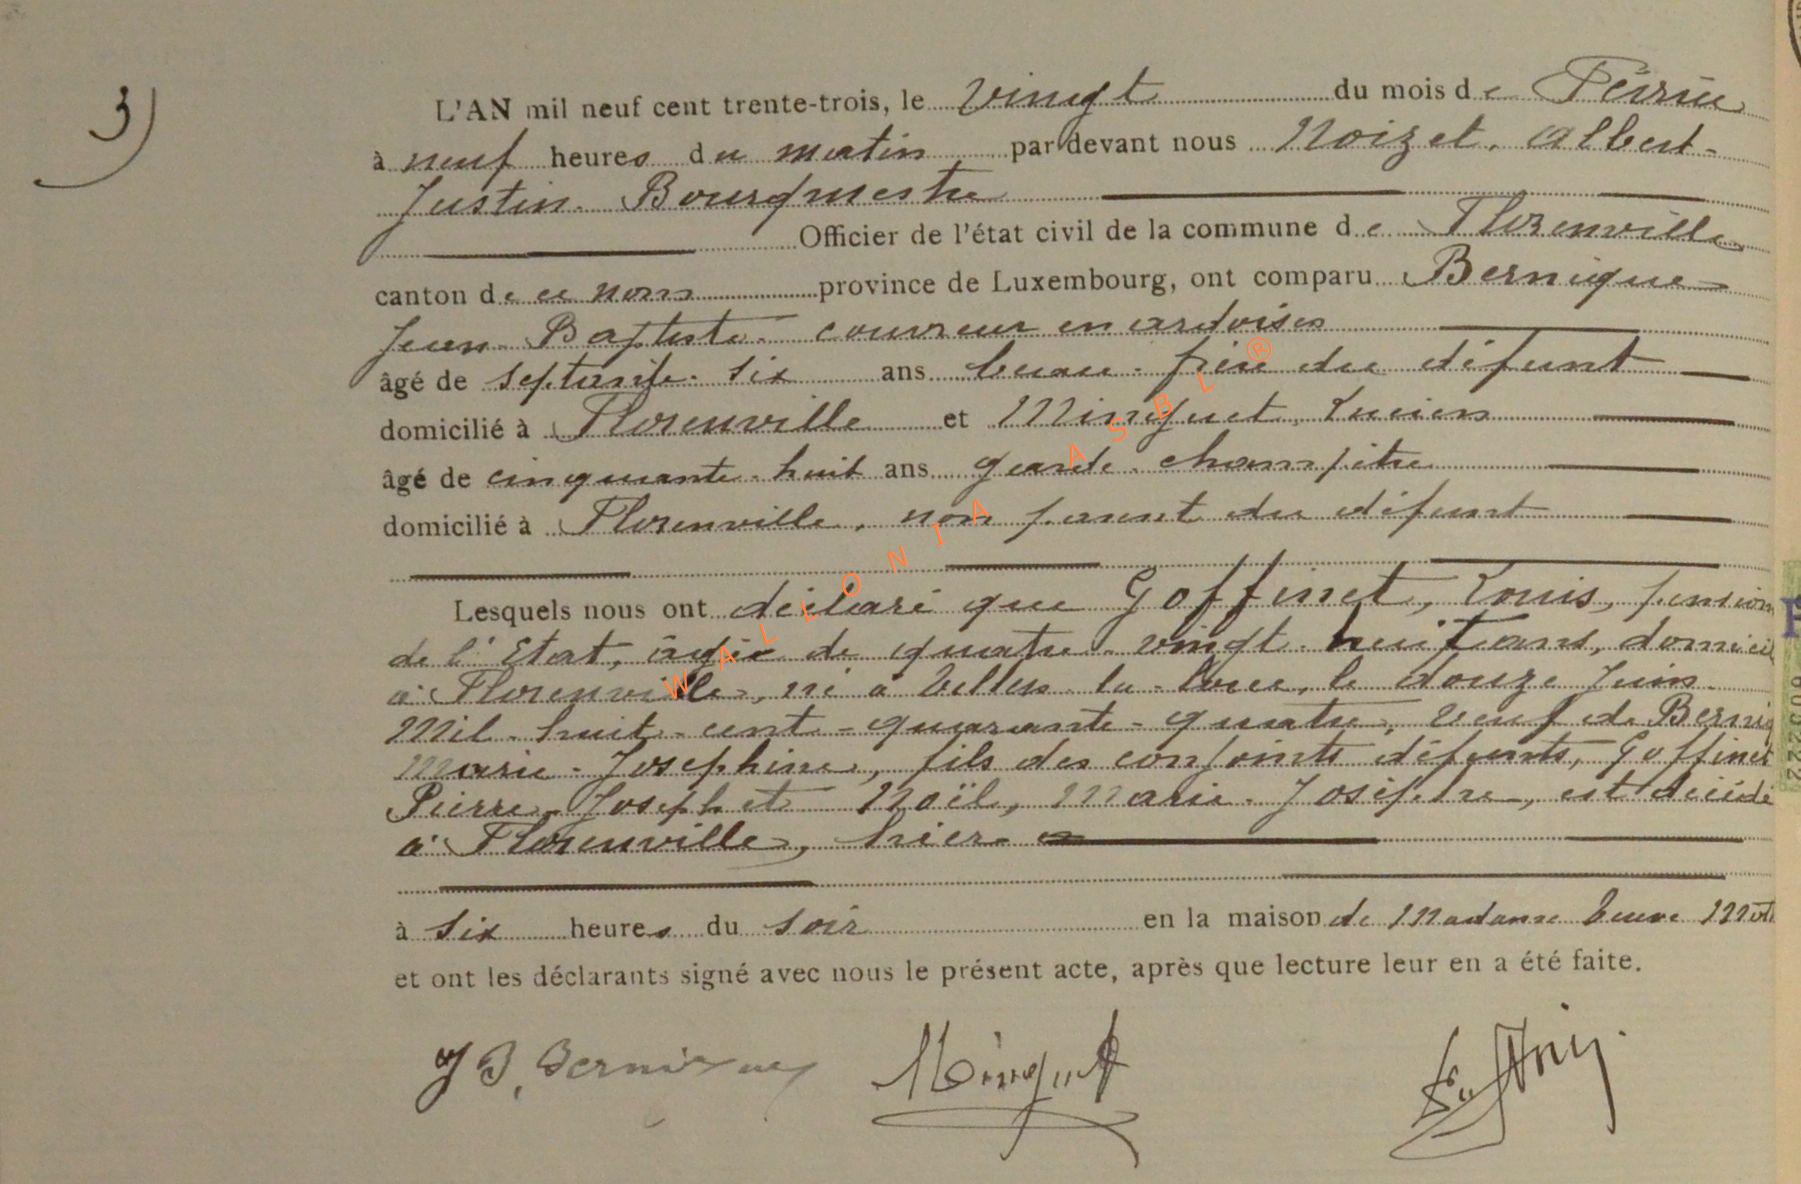 3)
L'AN mil neuf cent trente-trois, le vingt du mois de Février
à neuf heures du matin par devant nous Noizet, Albert-
Justin. Bourgmestre
Officier de l'état civil de la commune de Florenville
canton de ce nom province de Luxembourg, ont comparu Bernique
Jean-Baptiste. couvreur en ardoises
âgé de septante-six ans beau-frère du défunt
domicilié à Florenville et Minguet, Lucien
âgé de cinquante-huit ans garde-champêtre
domicilié à Florenville, non parent du défunt
Lesquels nous ont déclaré que Goffinet, Louis, pension
de l'Etat, âgé de quatre-vingt huit ans, domicil
à Florenville, né à Villers-la-Loue, le douze Juin
Mil-huit-cent-quarante-quatre, veuf de Berniq
Marie-Josephine, fils des conjoints défunts, Goffinet
Pierre-Joseph et Noël, Marie-Josèphe, est décédé
à Florenville, hier
à six heures du soir en la maison de Madame Veuve
et ont les déclarants signé avec nous le présent acte, après que lecture leur en a été faite.
JB. Bernique Minguet
WALLONIA ASBL ®
603222